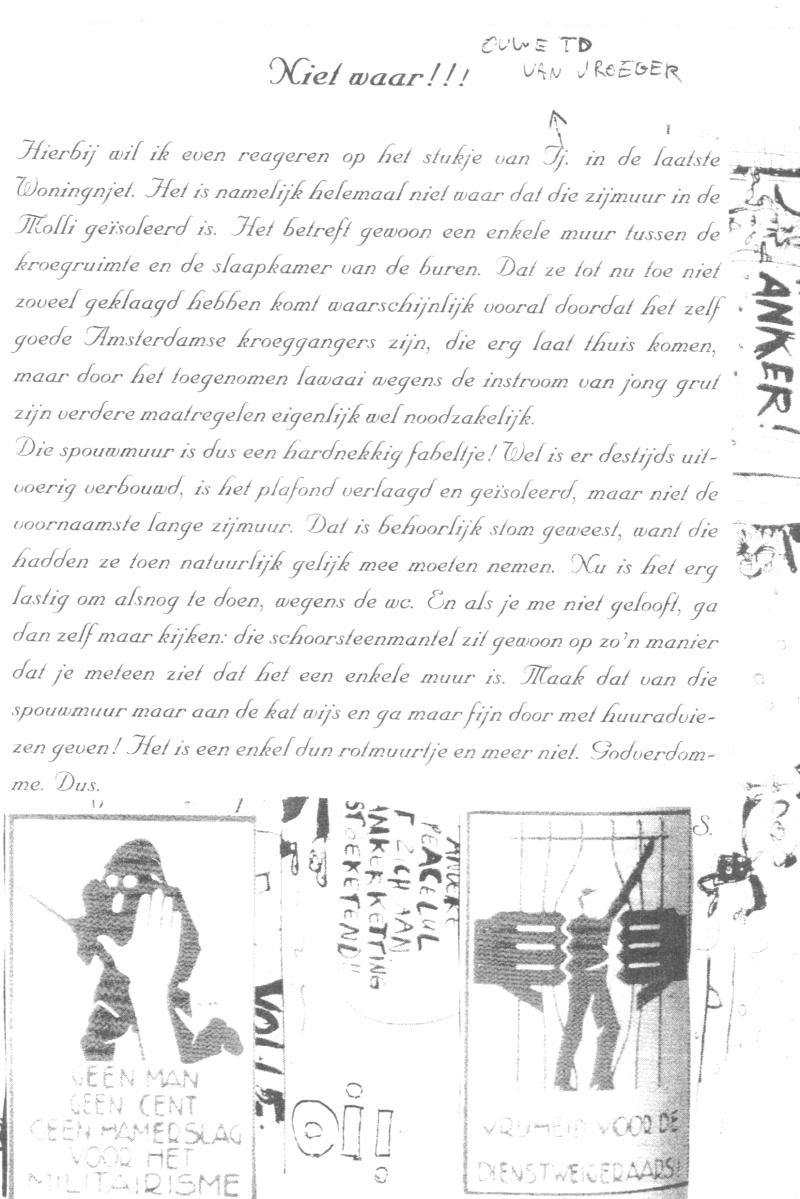 OUWE TD
VAN VROEGER
Niet waar!!!
Hierbij wil ik even reageren op het stukje van Tj. in de laatste
Woningnjet. Het is namelijk helemaal niet waar dat die zijmuur in de
Molli geïsoleerd is. Het betreft gewoon een enkele muur tussen de
kroegruimte en de slaapkamer van de buren. Dat ze tot nu toe niet
zoveel geklaagd hebben komt waarschijnlijk vooral doordat het zelf
goede Amsterdamse kroeggangers zijn, die erg laat thuis komen,
maar door het toegenomen lawaai wegens de instroom van jong grut
zijn verdere maatregelen eigenlijk wel noodzakelijk.
Die spouwmuur is dus een hardnekkig fabeltje! Wel is er destijds uit-
voerig verbouwd, is het plafond verlaagd en geïsoleerd, maar niet de
voornaamste lange zijmuur. Dat is behoorlijk stom geweest, want die
hadden ze toen natuurlijk gelijk mee moeten nemen. Nu is het erg
lastig om alsnog te doen, wegens de wc. En als je me niet gelooft, ga
dan zelf maar kijken: die schoorsteenmantel zit gewoon op zo'n manier
dat je meteen ziet dat het een enkele muur is. Maak dat van die
spouwmuur maar aan de kat wijs en ga maar fijn door met huuradvie-
zen geven! Het is een enkel dun rotmuurtje en meer niet. Godverdom-
me. Dus.
S.
ANKER!
ANDERE
PEACELUL
ZICH AAN
ANKERKETTING
GEEN MAN
GEEN CENT
GEEN HAMERSLAG
VOOR HET
MILITAIRISME
Oii
VRIJHEID VOOR DE
DIENSTWEIGERAARS!